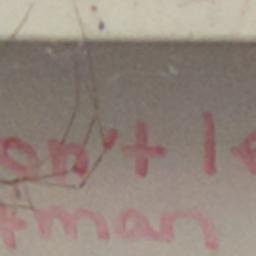 on't le
tman